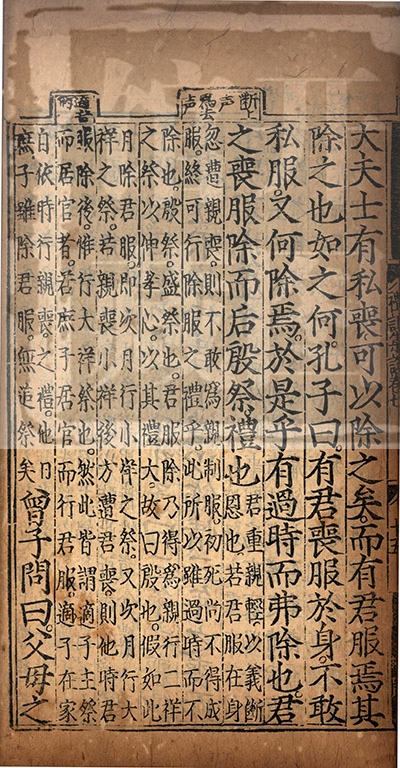 断声
爲去声
適音的
大夫士有私喪可以除之矣。而有君服焉。其
除之也如之何。孔子曰。有君喪服於身。不敢
私服。又何除焉。於是乎有過時而弗除也。君
之喪服除而后殷祭。禮也
君重親輕。以義斷
恩也。若君服在身
忽遭親喪。則不敢為親制服。初死尚不得成
服。終可行除服之禮乎。此所以雖過時而不
除也。殷祭。盛祭也。君服除。乃得為親行二祥
之祭。以伸孝心。以其禮大。故曰殷也。假如此
月除君服。即次月行小祥之祭。又次月行大
祥之祭。若親喪小祥後。方遭君喪。則他時君
服除後。惟行大祥祭也。然此皆謂適子主祭
而居官者。若庶子居官而行君服。適子在家
自依時行親喪之禮。他日
庶子雖除君服。無追祭矣
曾子問曰。父母之
十五